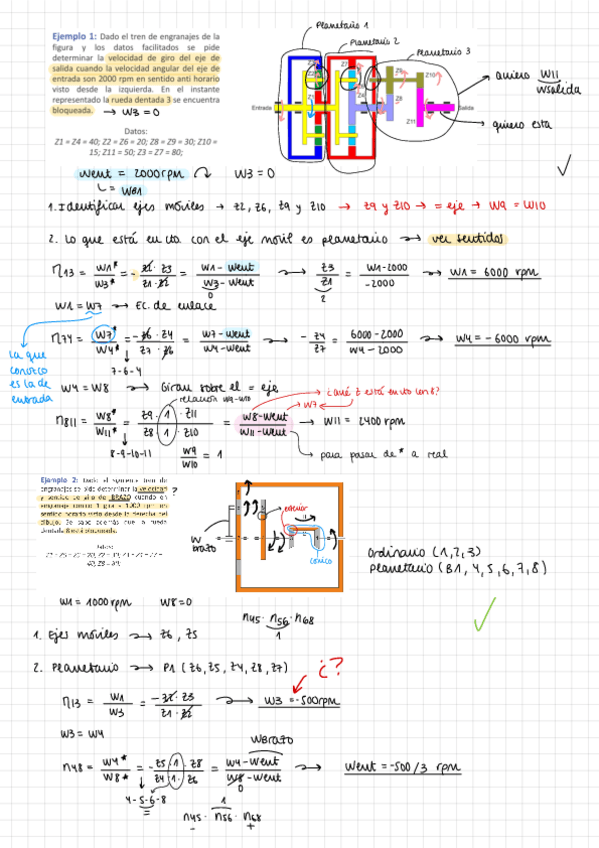 Planetario 1
Planetario 2
Planetario 3
Ejemplo 1: Dado el tren de engranajes de la
figura y los datos facilitados se pide
determinar la velocidad de giro del eje de
salida cuando la velocidad angular del eje de
entrada son 2000 rpm en sentido anti horario
visto desde la izquierda. En el instante
representado la rueda dentada 3 se encuentra
bloqueada. → W3 = 0
Entrada
Salida
Z10
Z8
Z11
quiero W11
Wsalida
quiero esta
Datos:
Z1 = Z4 = 40; Z2 = Z6 = 20; Z8 = Z9 = 30; Z10 =
15; Z11 = 50; Z3 = Z7 = 80;
Went = 2000 rpm W3 = 0
= WB1
1. Identificar ejes móviles → Z2, Z6, Z9 y Z10 → Z9 y Z10 → = eje → W9 = W10
2. Lo que está en cto con el eje móvil es planetario → ver sentidos
n13 = W1* / W3* = - Z2 · Z3 / Z1 · Z2 = W1 - Went / W3 - Went → Z3 / Z1 = W1 - 2000 / -2000 → W1 = 6000 rpm
0
2
W1 = W7 → EC. de enlace
n74 = W7* / W4* = - Z6 · Z4 / Z7 · Z6 = W7 - Went / W4 - Went → - Z4 / Z7 = 6000 - 2000 / W4 - 2000 → W4 = - 6000 rpm
7-6-4
La que
conozco
es la de
entrada
W4 = W8 → Giran sobre el = eje
relación W9-W10
¿Qué Z está en cto con 8?
W7
n811 = W8* / W11* = Z9 · 1 · Z11 / Z8 · 1 · Z10 = W8 - Went / W11 - Went → W11 = 2400 rpm
8-9-10-11
W9 / W10 = 1
para pasar de * a real
Ejemplo 2:
engranajes se pide determinar la velocidad ?
BRAZO cuando
W
brazo
cónico
ordinario (1,2,3)
planetario (B1, 4, 5, 6, 7, 8)
W1 = 1000 rpm W8 = 0
n45 · n56 · n68
1
1. Ejes móviles → Z6, Z5
2. Planetario → P1 (Z6, Z5, Z4, Z8, Z7)
¿?
n13 = W1 / W3 = - Z2 · Z3 / Z1 · Z2 → W3 = -500 rpm
W3 = W4
Wbrazo
n48 = W4* / W8* = - Z5 · 1 · Z8 / Z4 · 1 · Z6 = W4 - Went / W8 - Went → Went = -500/3 rpm
0
4-5-6-8
1
n45 · n56 · n68
- +